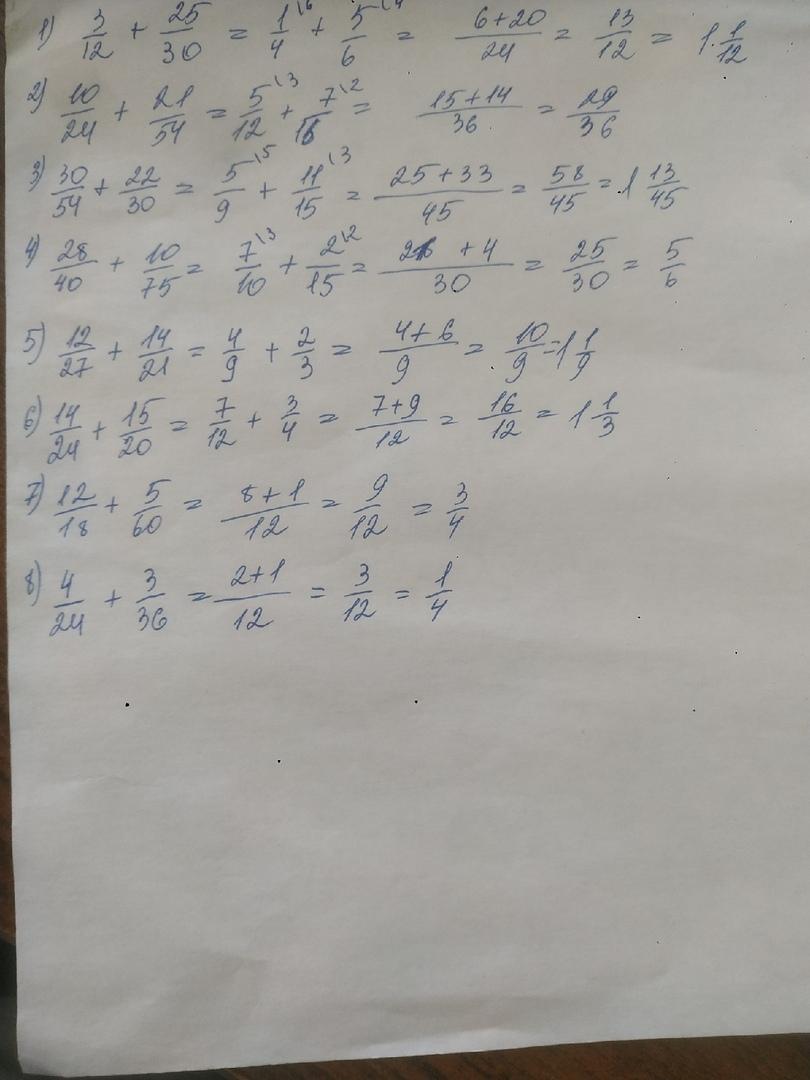 1) 3/12 + 25/30 = 1\6/4 + 5\4/6 = 6+20/24 = 13/12 = 1 1/12
2) 10/24 + 21/54 = 5\3/12 + 7\2/18 = 15+14/36 = 29/36
3) 30/54 + 22/30 = 5\5/9 + 11\3/15 = 25+33/45 = 58/45 = 1 13/45
4) 28/40 + 10/75 = 7\3/10 + 2\2/15 = 21+4/30 = 25/30 = 5/6
5) 12/27 + 14/21 = 4/9 + 2/3 = 4+6/9 = 10/9 = 1 1/9
6) 14/24 + 15/20 = 7/12 + 3/4 = 7+9/12 = 16/12 = 1 1/3
7) 12/18 + 5/60 = 8+1/12 = 9/12 = 3/4
8) 4/24 + 3/36 = 2+1/12 = 3/12 = 1/4